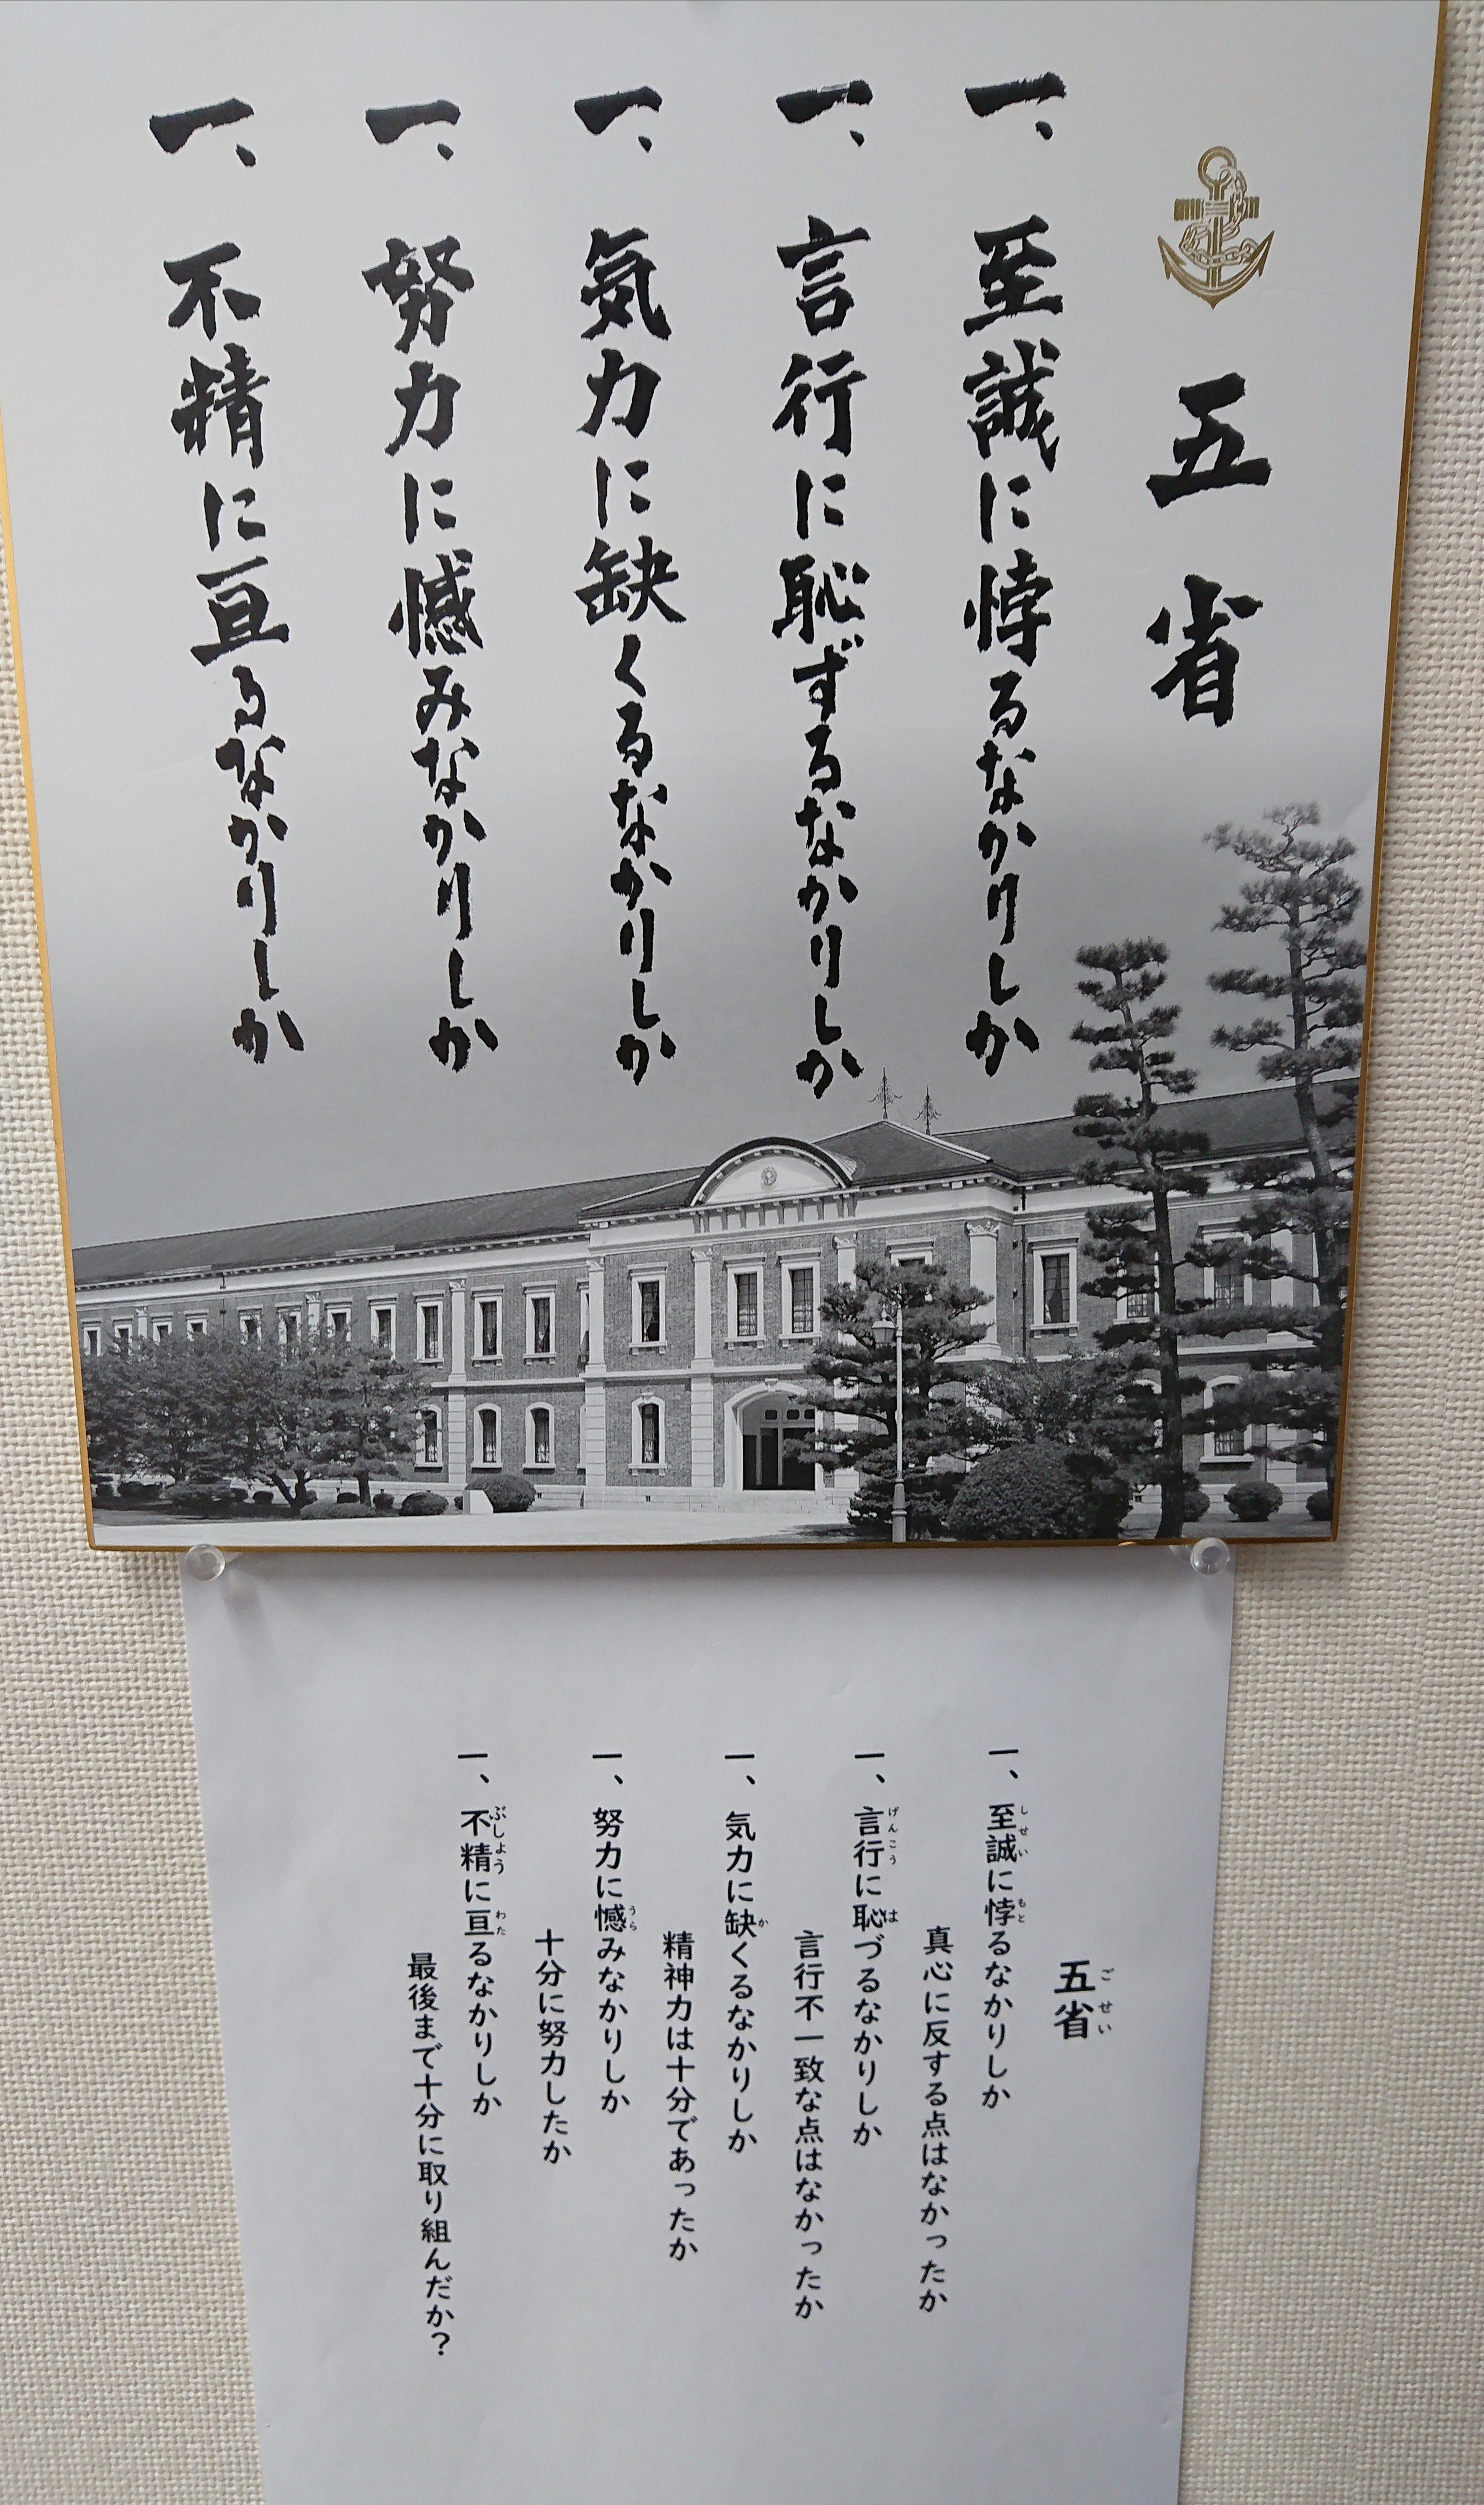 五省
一、至誠に悖るなかりしか
一、言行に恥ずるなかりしか
一、気力に缺くるなかりしか
一、努力に憾みなかりしか
一、不精に亘るなかりしか
五省
ごせい
一、至誠に悖るなかりしか
しせい もと
真心に反する点はなかったか
一、言行に恥づるなかりしか
げんこう は
言行不一致な点はなかったか
一、気力に缺くるなかりしか
か
精神力は十分であったか
一、努力に憾みなかりしか
うら
十分に努力したか
一、不精に亘るなかりしか
ぶしよう わた
最後まで十分に取り組んだか？